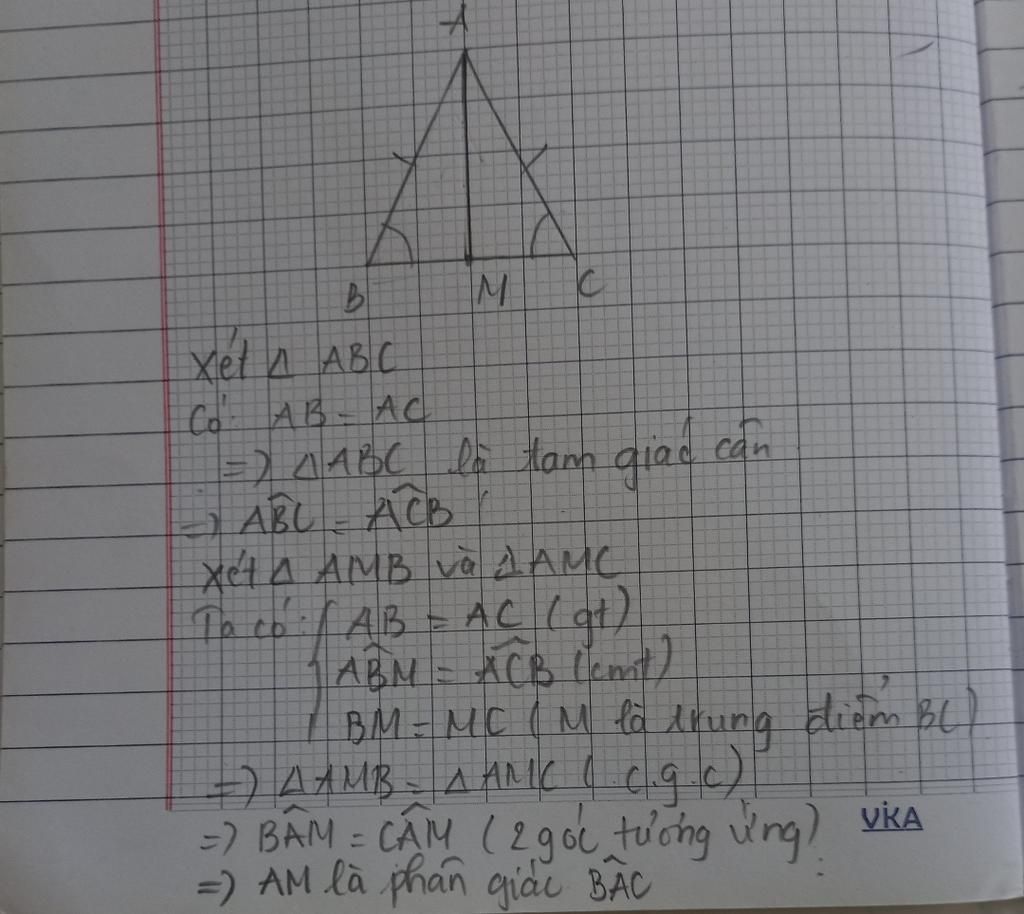 A
B M C
Xét Δ ABC
Có: AB = AC
=> ΔABC là tam giác cân
=> AB̂C = AĈB
Xét Δ AMB và ΔAMC
Ta có: { AB = AC (gt)
AB̂M = AĈB (cmt)
BM = MC ( M là trung điểm BC)
=> ΔAMB = ΔAMC ( c.g.c)
=> BÂM = CÂM (2 góc tướng ứng)
VIKA
=> AM là phân giác BÂC